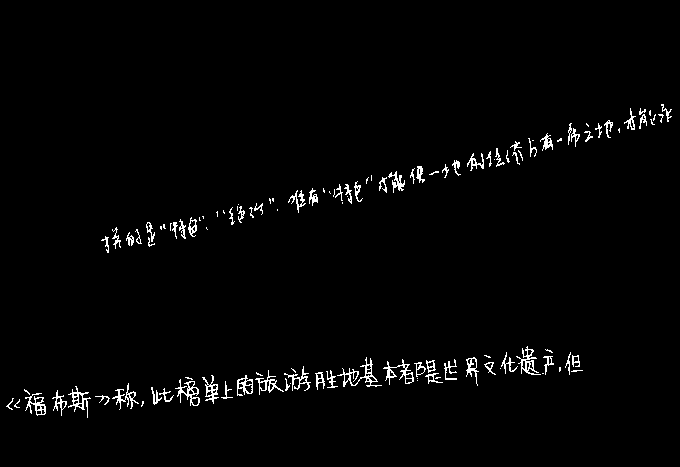 拼的是“特色”、“绝活”。唯有“特色”才能使一地的经济占有一席之地，才能译
《福布斯》称，此榜单上的旅游胜地基本都是世界文化遗产，但